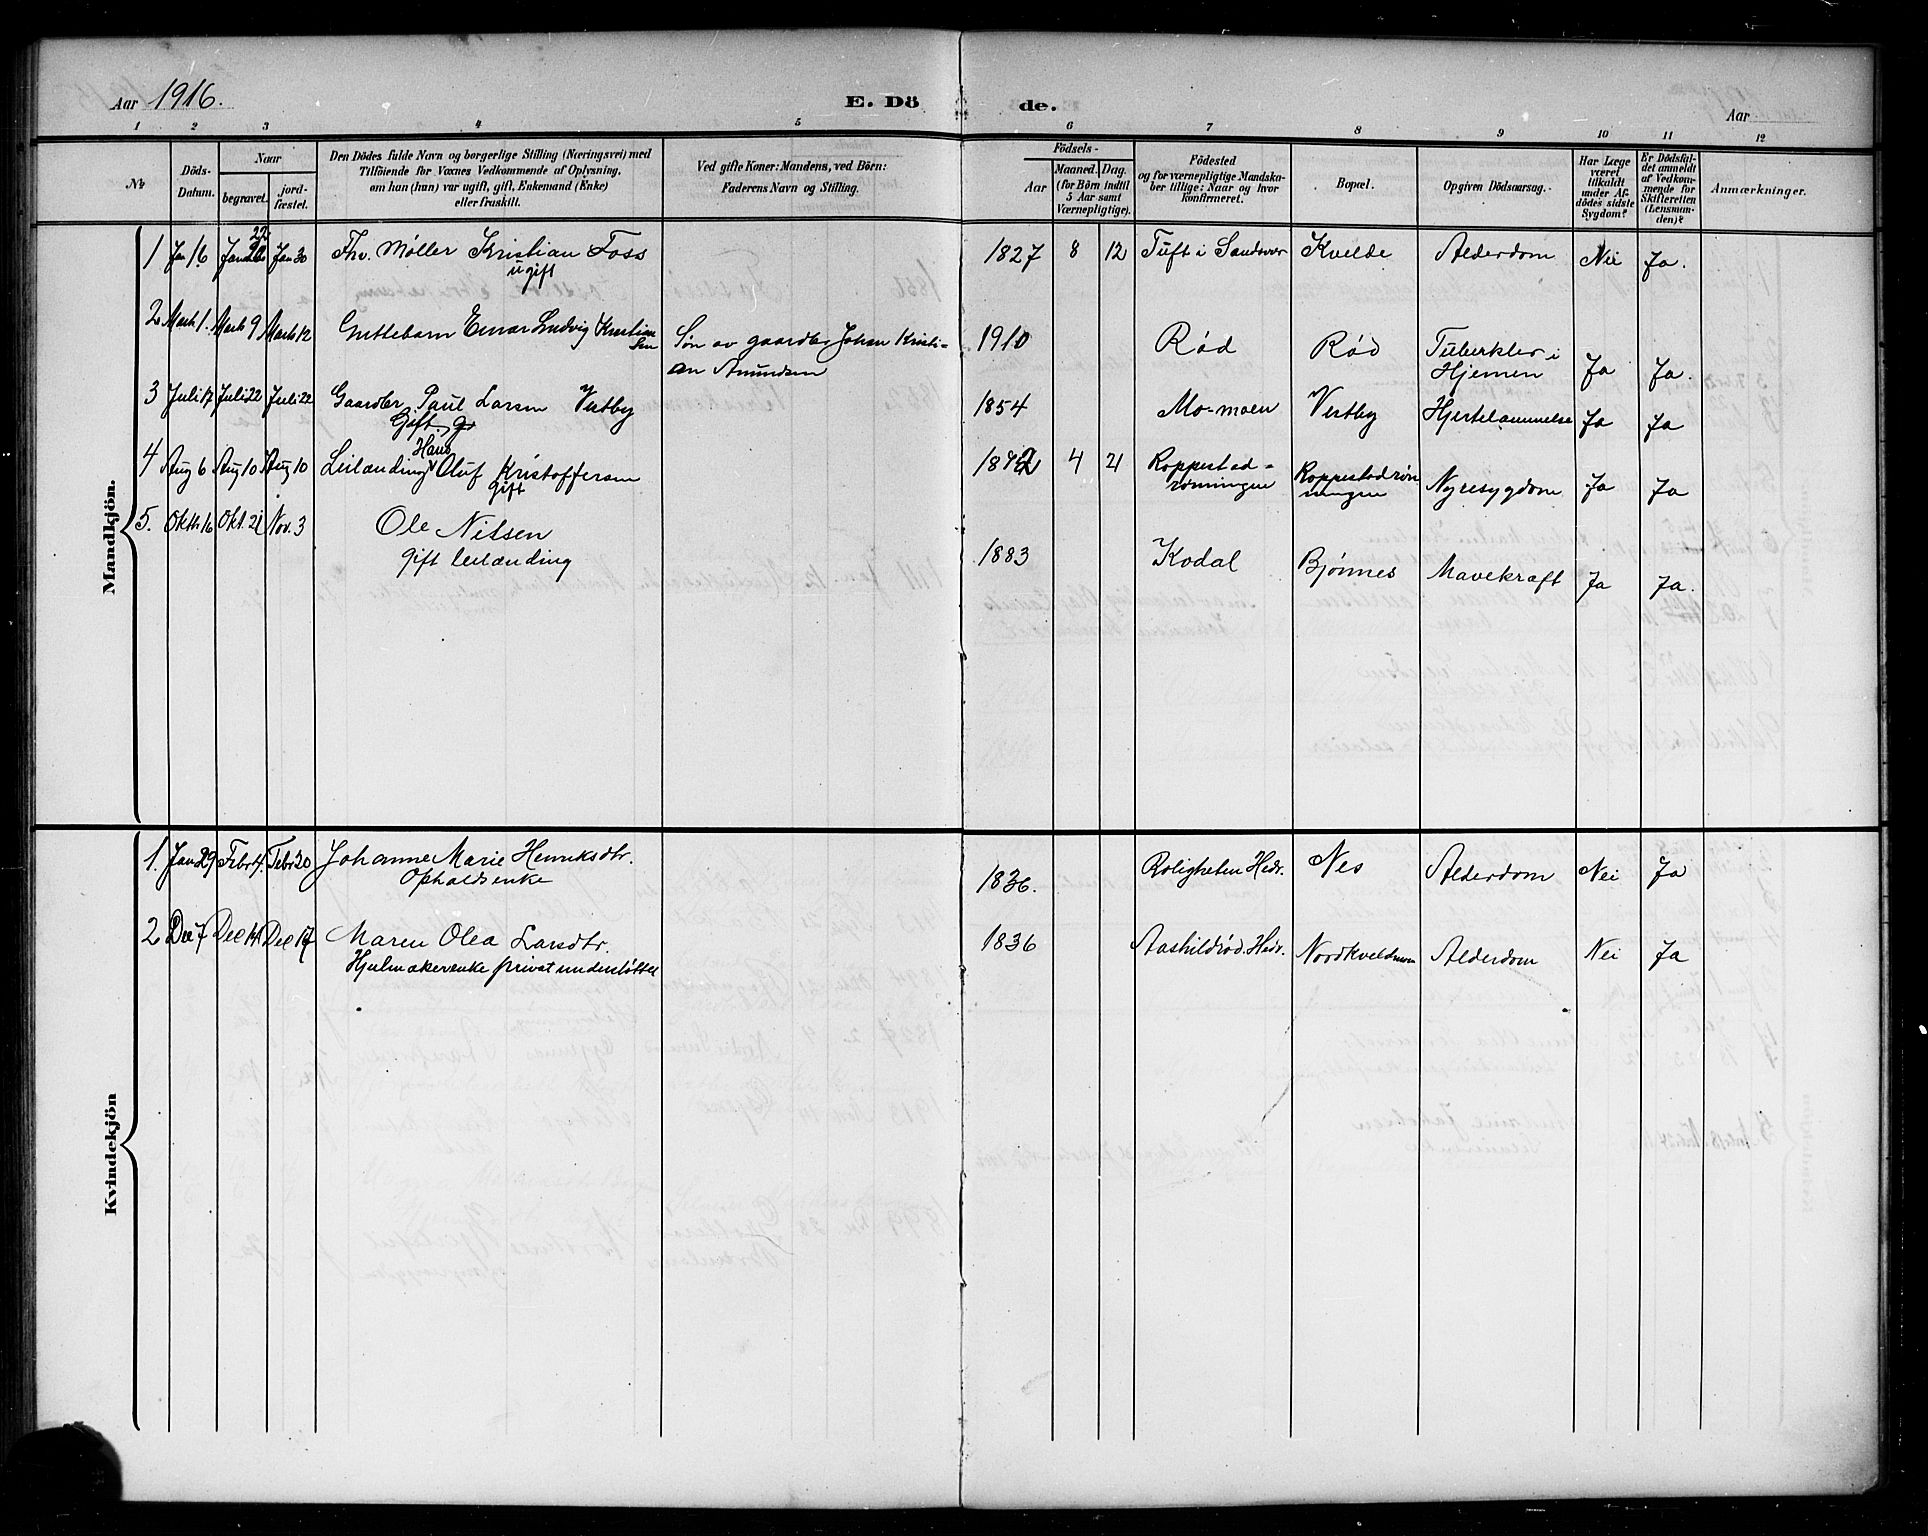 Aar 1916.
E. Dö de.
Aar
1 2 3 4 5 6 7 8 9 10 11 12
No
Döds-
Datum.
Naar
begravet.
jord-
fæstet.
Den Dödes fulde Navn og borgerlige Stilling (Næringsvei) med
Tilföiende for Voxnes Vedkommende af Oplysning,
om han (hun) var ugift, gift, Enkemand (Enke)
eller fraskilt.
Ved gifte Koner: Mandens, ved Börn:
Faderens Navn og Stilling.
Födsels-
Aar
Maaned. Dag.
(for Börn indtil
5 Aar samt
Værnepligtige).
Födested
og for værnepligtige Mandska-
ber tillige: Naar og hvor
konfirmeret.
Bopæl.
Opgiven Dödsaarsag.
Har Læge
været
tilkaldt
under Af-
dödes sidste
Sygdom?
Er Dödsfal-
det anmeldt
af Vedkom-
mende for
Skifteretten
(Lensman-
den)?
Anmærkninger.
Mandkjön.
1 Jan 16 22 Jan 30 Fhv. Møller Kristian Foss 1827 8 12 Tuft i Sandsvær Kvelde Alderdom Nei Ja.
ugift
2 Marts 1. Marts 9 Marts 12 Guttebarn Einar Ludvig Kristian
sen
Søn av gaardbr Johan Kristi-
an Amundsen
1910 Rød Rød Tuberkler i
Hjernen Ja Ja.
3 Juli 17 Juli 22 Juli 22 Gaardbr. Paul Larsen Vestby 1854 Mo-moen Vestby Hjertelammelse Ja Ja
Gift.
4 Aug 6 Aug 10 Aug 10 Leilænding Hans Oluf Kristoffersen 4 21 Roppestad-
rønningen Roppestadrøn
ningen Nyresygdom Ja Ja
Gift
5. Oktb 16 Okt. 21 Nov. 3 Ole Nilsen
gift leilænding
1883 Kodal Bjønnes Mavekræft Ja Ja.
Kvindekjön
1. Jan 29 Febr 4. Febr 20 Johanne Marie Henriksdtr.
Opholdsenke
1836. Roligheten Hedr. Nes Alderdom Nei Ja
2 Dec 7 Dec 14 Dec 17 Maren Olea Larsdtr.
Hjulmakerenke privat understøttet
1836 Aashildrød. Hedr. Nordkveldmoen Alderdom Nei Ja